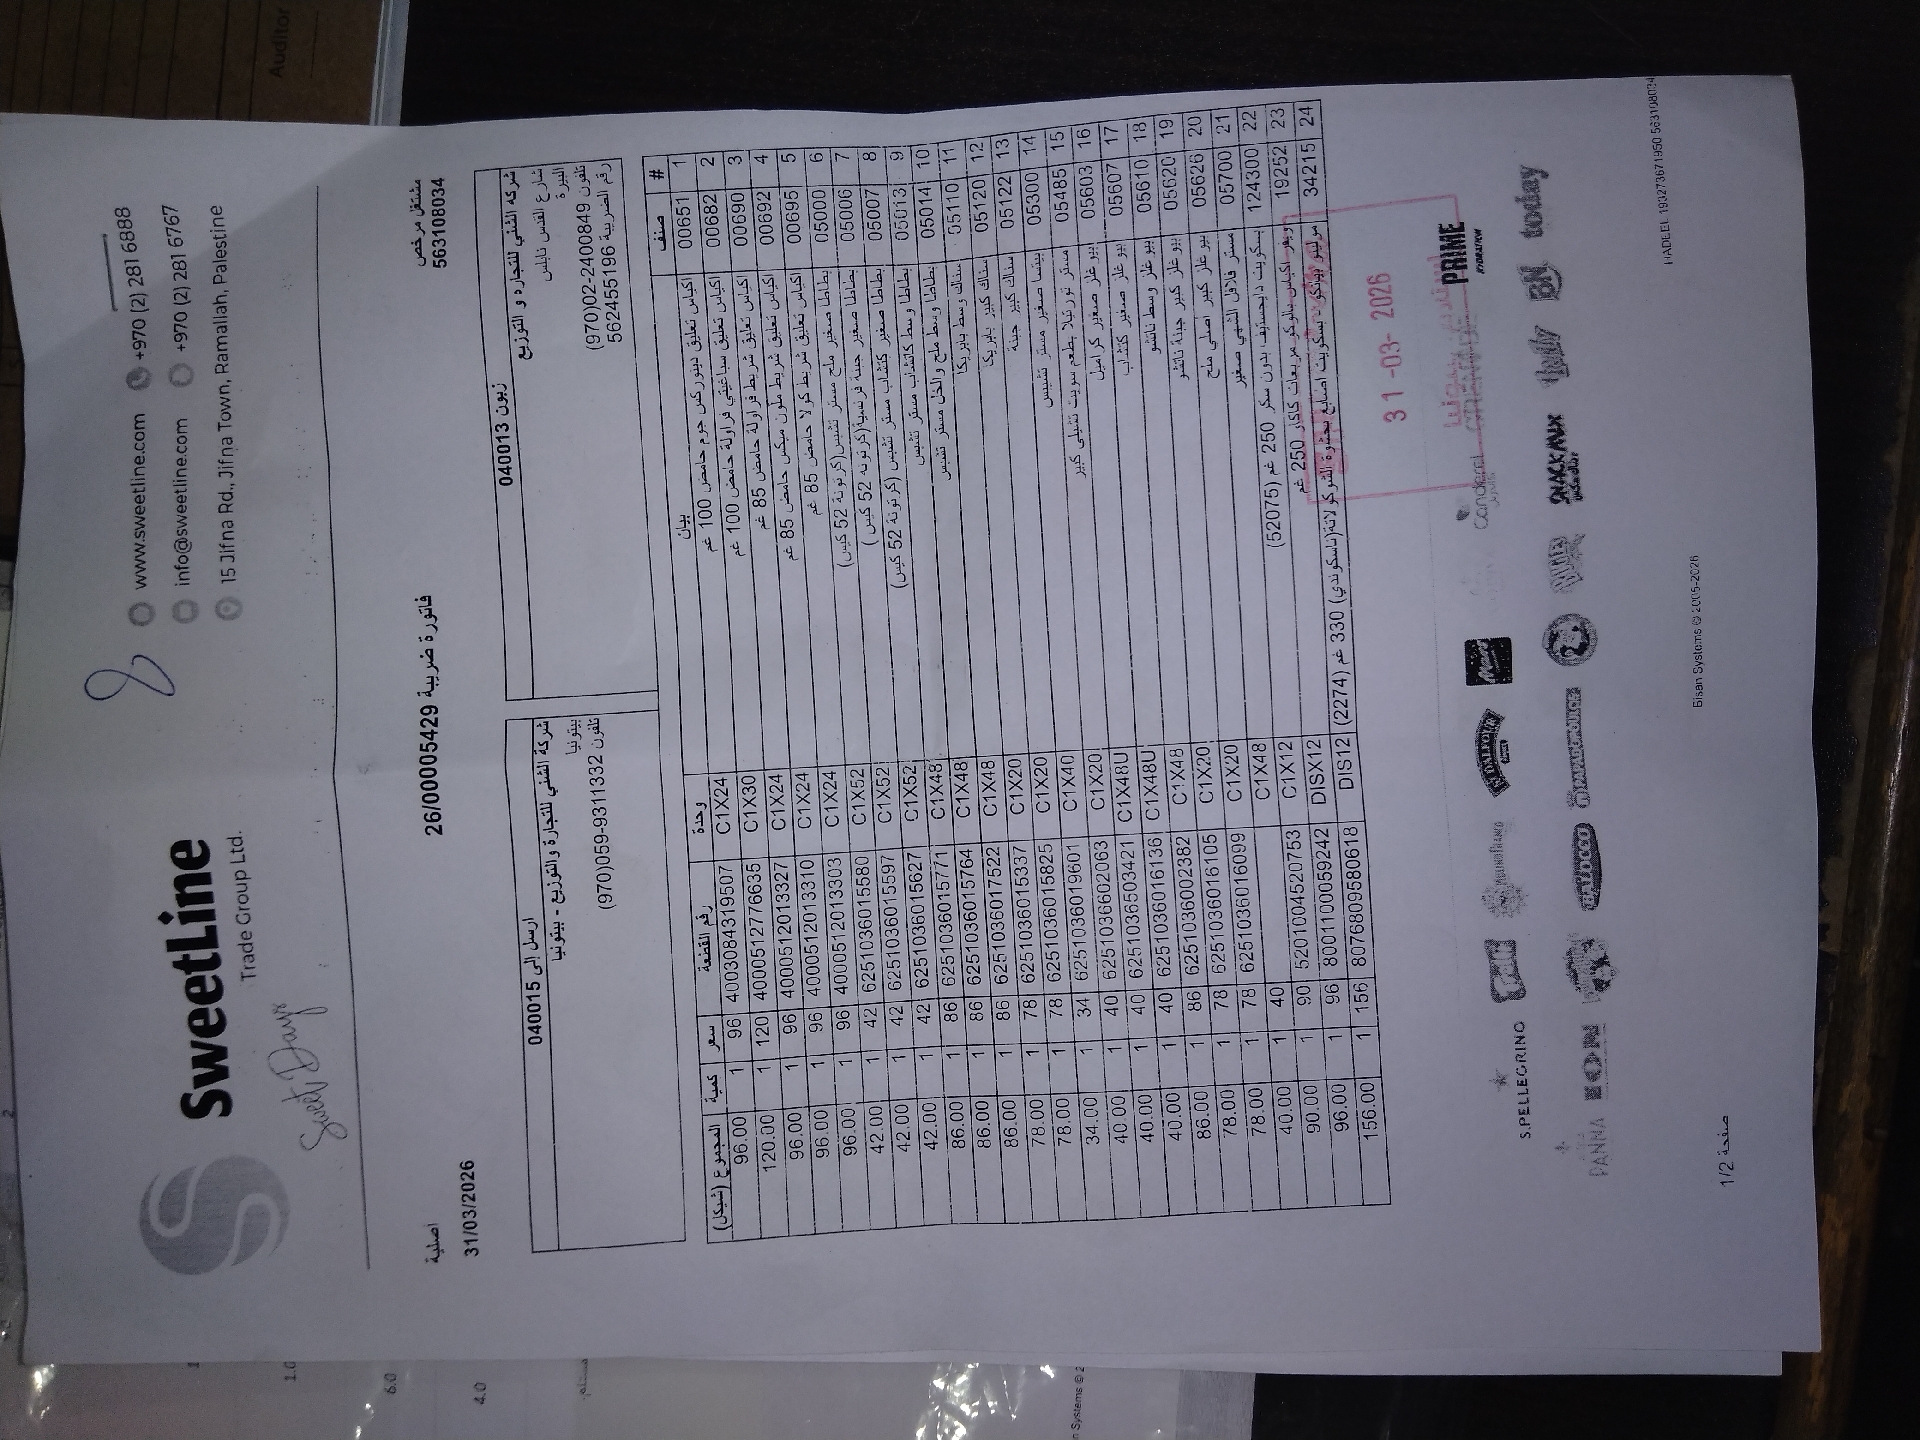 SweetLine
Trade Group Ltd.
www.sweetline.com +970 (2) 281 6888
info@sweetline.com +970 (2) 281 6767
15 Jifna Rd., Jifna Town, Ramallah, Palestine
8
Sweet Days
اصلية
فاتورة ضريبية 26/00005429
مشتغل مرخص
563108034
31/03/2026
زبون 040013
شركة الشني للتجارة و التوزيع
شارع القدس نابلس
البيرة
تلفون 02-2400849(970)
رقم الضريبة 562455196
ارسل إلى 040015
شركة الشني للتجارة والتوزيع - بيتونيا
بيتونيا
تلفون 059-9311332(970)
# صنف بيان وحدة رقم القطعة سعر كمية المجموع (شيكل)
1 00651 اكياس تعليق ديبوركس جوم حامض 100 غم C1X24 4003084319507 96 1 96.00
2 00682 اكياس تعليق سباغيتي فراولة حامض 100 غم C1X30 4000512776635 120 1 120.00
3 00690 اكياس تعليق شريط فراولة حامض 85 غم C1X24 4000512013327 96 1 96.00
4 00692 اكياس تعليق شريط ملون ميكس حامض 85 غم C1X24 4000512013310 96 1 96.00
5 00695 اكياس تعليق شريط كولا حامض 85 غم C1X24 4000512013303 96 1 96.00
6 05000 بطاطا صغير ملح مستر تشبس(كرتونة 52 كيس) C1X52 6251036015580 42 1 42.00
7 05006 بطاطا صغير جبنة فرنسية(كرتونة 52 كيس ) C1X52 6251036015597 42 1 42.00
8 05007 بطاطا صغير كتشاب مستر تشبس (كرتونة 52 كيس) C1X52 6251036015627 42 1 42.00
9 05013 بطاطا وسط كاتشاب مستر تشبس C1X48 6251036015771 86 1 86.00
10 05014 بطاطا وسط ملح والخل مستر تشبس C1X48 6251036015764 86 1 86.00
11 05110 سناك وسط بابريكا C1X48 6251036017522 86 1 86.00
12 05120 سناك كبير بابريكا C1X20 6251036015337 78 1 78.00
13 05122 سناك كبير جبنة C1X20 6251036015825 78 1 78.00
14 05300 بيتسا صغير مستر تشبس C1X40 6251036019601 34 1 34.00
15 05485 مستر تورتيلا بطعم سويت تشيلي كبير C1X20 6251036602063 40 1 40.00
16 05603 بيوغلز صغير كراميل C1X48U 6251036503421 40 1 40.00
17 05607 بيوغلز صغير كتشاب C1X48U 6251036016136 40 1 40.00
18 05610 بيوغلز وسط ناتشو C1X48 6251036002382 86 1 86.00
19 05620 بيوغلز كبير جبنة ناتشو C1X20 6251036016105 78 1 78.00
20 05626 بيوغلز كبير اصلي ملح C1X20 6251036016099 78 1 78.00
21 05700 مستر فلافل الشهي صغير C1X48 40 1 40.00
22 124300 بسكويت دايجستيف بدون سكر 250 غم (52075) C1X12 5201004520753 90 1 90.00
23 19252 ويفر اكياس بالوكو مربعات كاكاو 250 غم DISX12 8001100059242 96 1 96.00
24 34215 بسكويت اصابع محشوة الشوكولاتة(تاسكوندي) 330 غم (2274) DIS12 8076809580618 156 1 156.00
31-03-2026
PRIME
HYDRATION
canderel
S.PELLEGRINO
PANNA
ION
SNACK MIX
BN
today
صفحة 1/2
Bisan Systems © 2005-2026